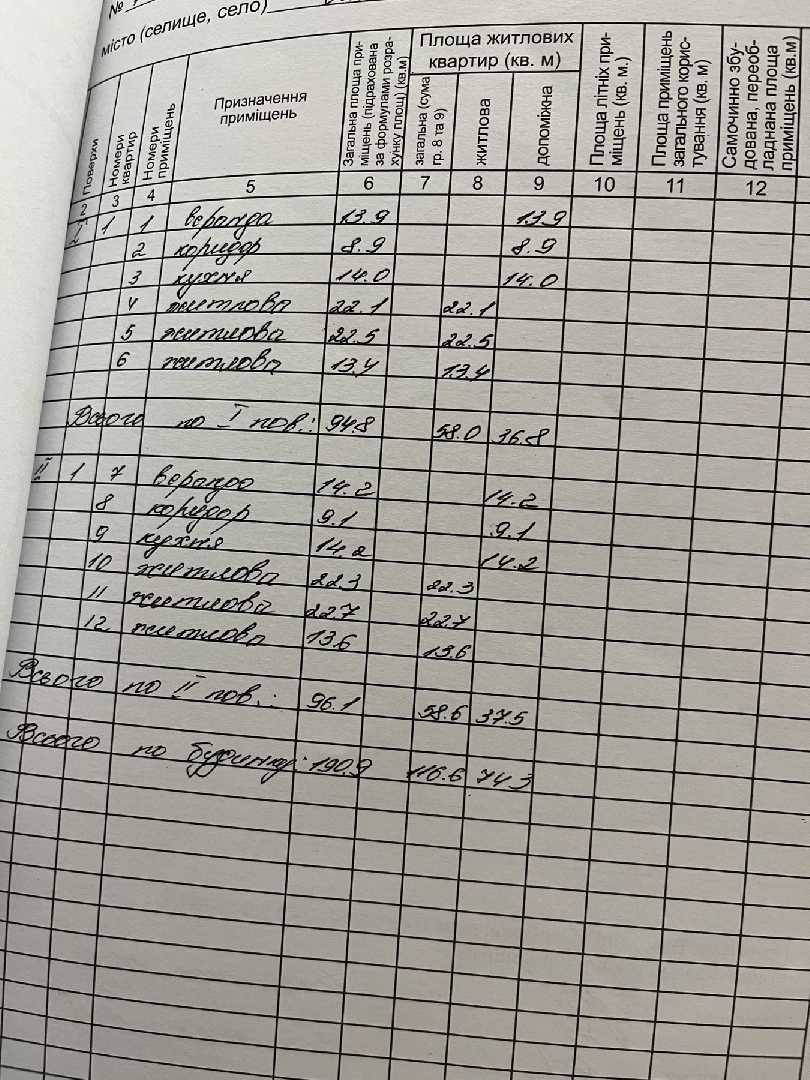 №
місто (селище, село)
Поверхи
Номери квартир
Номери приміщень
Призначення приміщень
Загальна площа приміщень (підрахована за формулами розрахунку площ) (кв.м)
Площа житлових квартир (кв. м)
загальна (сума гр. 8 та 9)
житлова
допоміжна
Площа літніх приміщень (кв. м.)
Площа приміщень загального користування (кв. м)
Самочинно збудована, переобладнана площа приміщень (кв. м)
2 3 4 5 6 7 8 9 10 11 12
I 1 1 веранда 13.9 13.9
2 коридор 8.9 8.9
3 кухня 14.0 14.0
4 житлова 22.1 22.1
5 житлова 22.5 22.5
6 житлова 13.4 13.4
Всього по I пов.: 94.8 58.0 36.8
II 1 7 веранда 14.2 14.2
8 коридор 9.1 9.1
9 кухня 14.2 14.2
10 житлова 22.3 22.3
11 житлова 22.7 22.7
12 житлова 13.6 13.6
Всього по II пов.: 96.1 58.6 37.5
Всього по будинку: 190.9 116.6 74.3